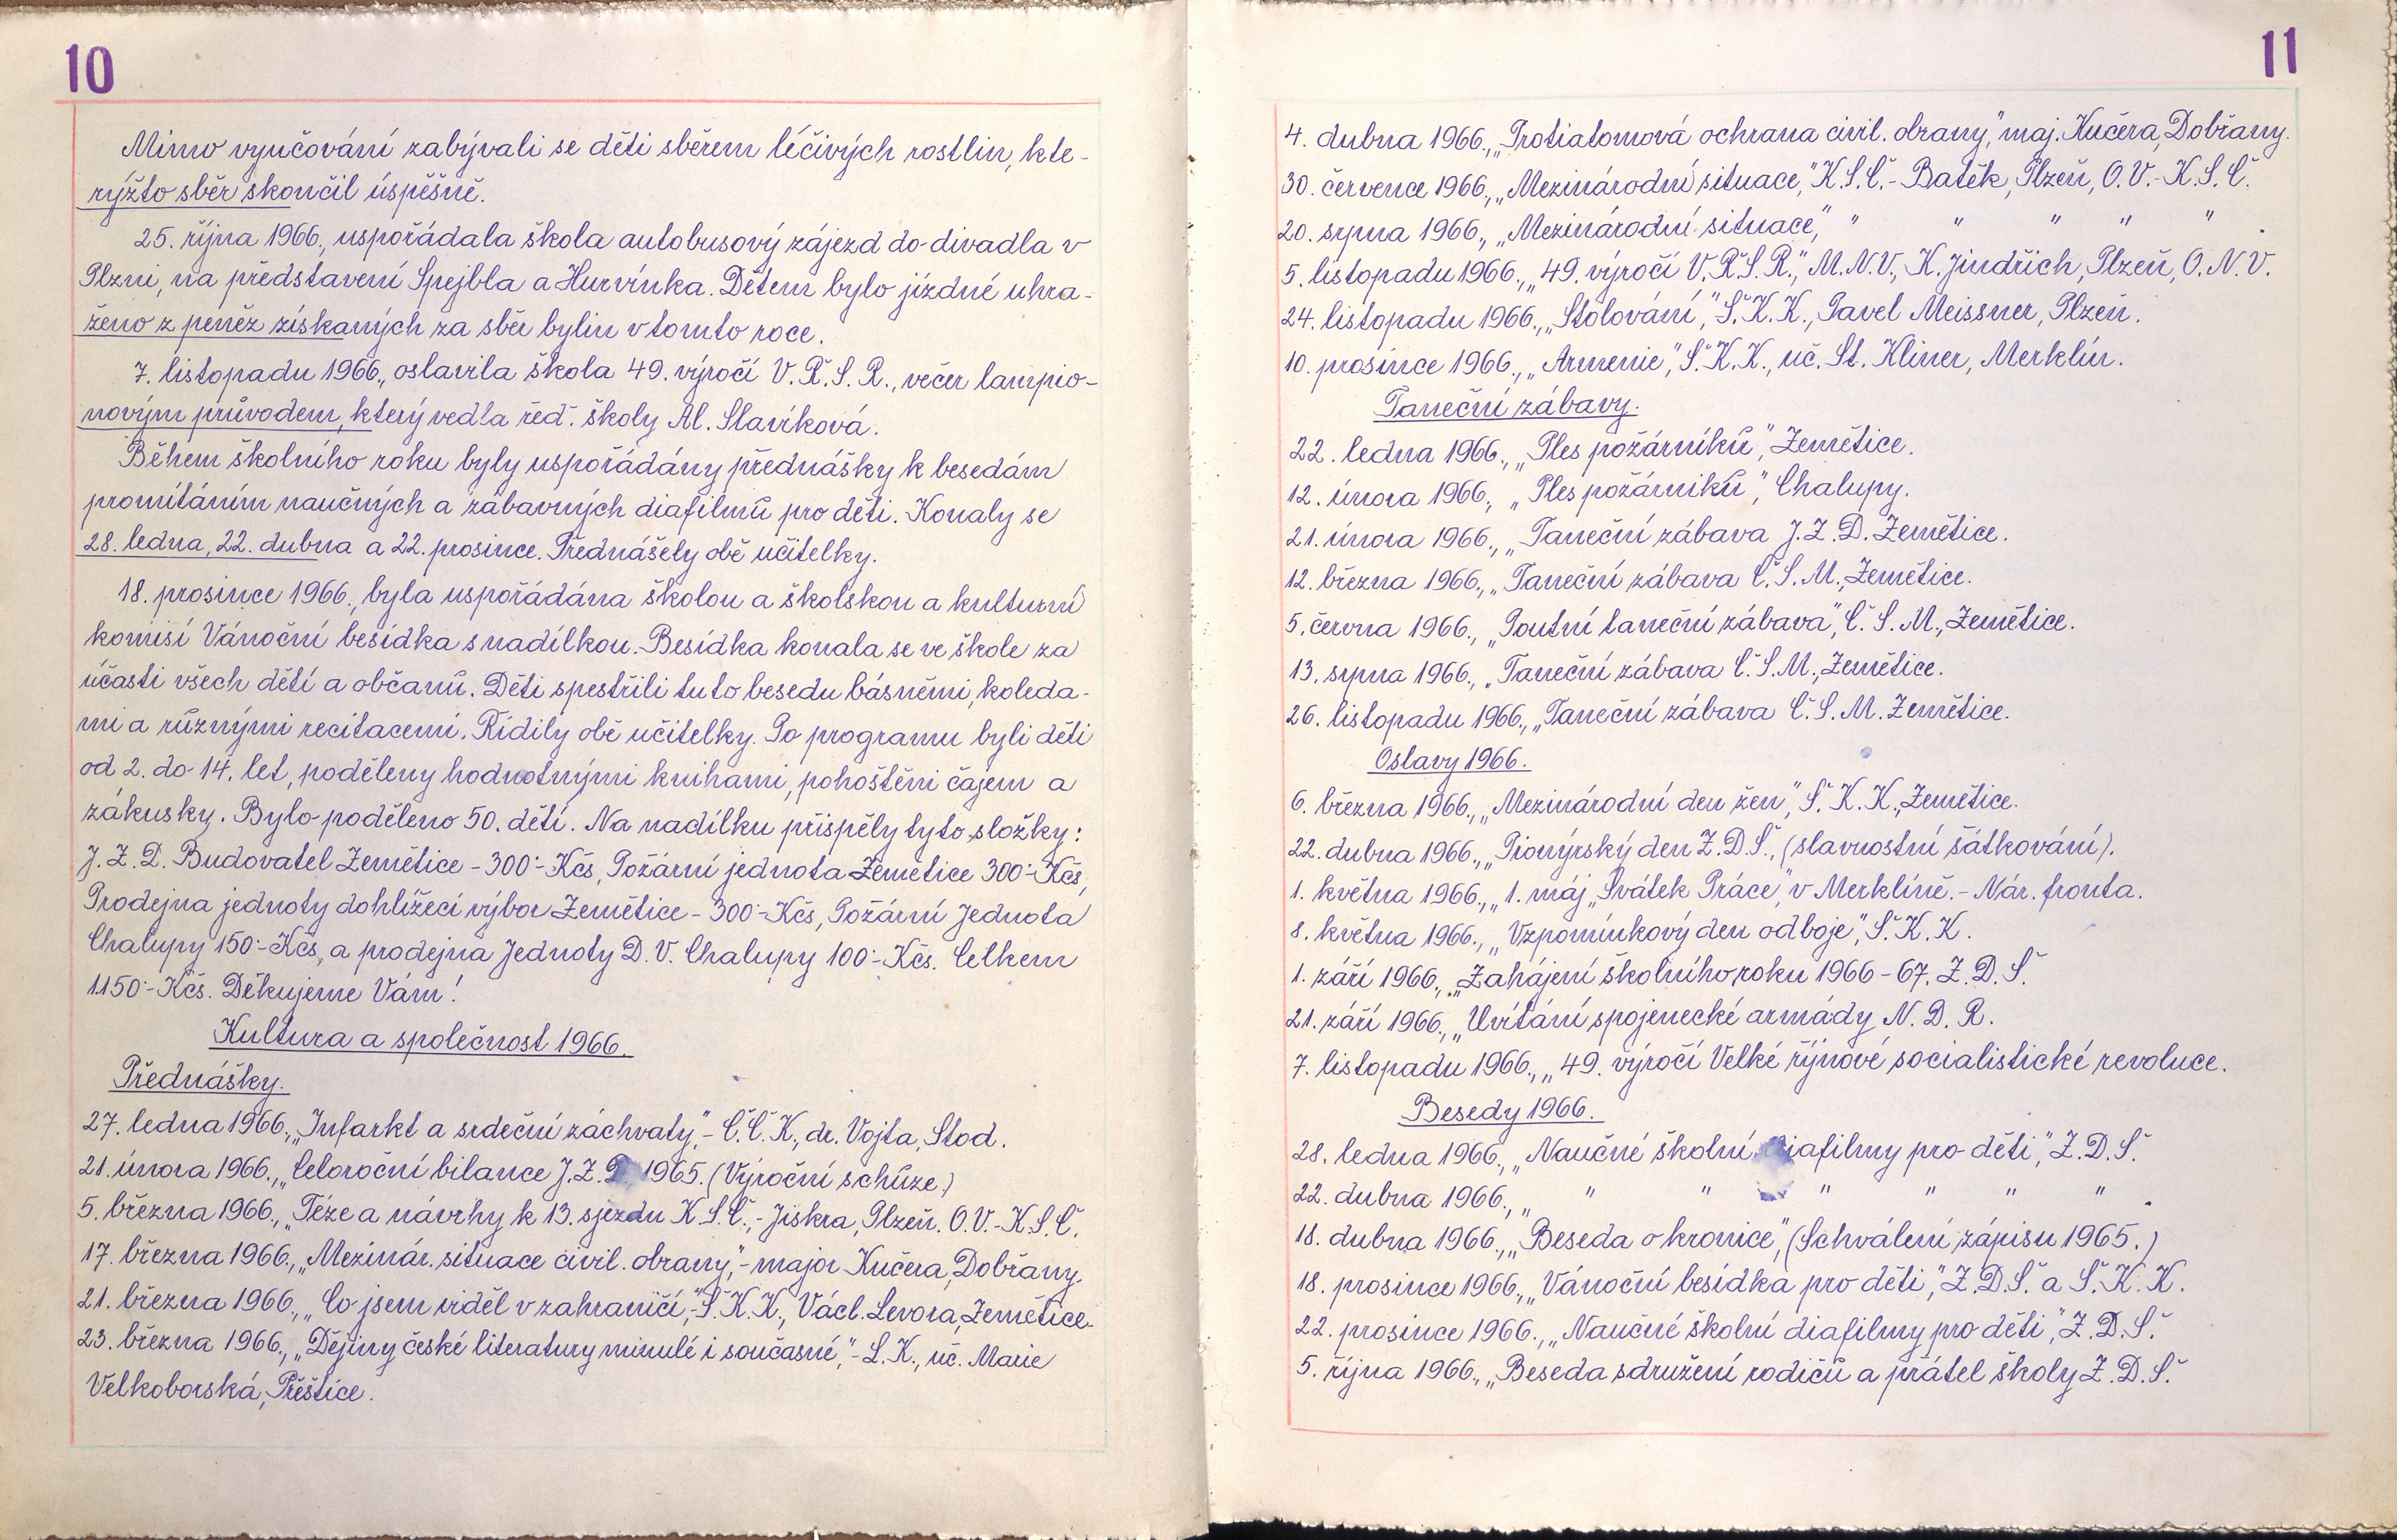 10
Mimo vyučování zabývali se děti sběrem léčivých rostlin, kte-
rýžto sběr skončil úspěšně.
25. října 1966., uspořádala škola autobusový zájezd do divadla v
Plzni, na představení Spejbla a Hurvínka. Dětem bylo jízdné uhra-
ženo z peněz získaných za sběr bylin v tomto roce.
7. listopadu 1966., oslavila škola 49. výročí V. Ř. S. R., večer lampio-
novým průvodem, který vedla řed. školy Al. Slavíková.
Během školního roku byly uspořádány přednášky k besedám
promítáním naučných a zábavných diafilmů pro děti. Konaly se
28. ledna, 22. dubna a 22. prosince. Přednášely obě učitelky.
18. prosince 1966., byla uspořádána školou a školskou a kulturní
komisí Vánoční besídka s nadílkou. Besídka konala se ve škole za
účasti všech dětí a občanů. Děti spestřili tuto besedu básněmi, koleda-
mi a různými recitacemi. Řídily obě učitelky. Po programu byli děti
od 2. do 14. let, poděleny hodnotnými knihami, pohoštěni čajem a
zákusky. Bylo poděleno 50. dětí. Na nadílku přispěly tyto složky:
J. Z. D. Budovatel Zemětice - 300·- Kčs, Požární jednota Zemětice 300·- Kčs,
Prodejna jednoty dohlížecí výbor Zemětice - 300·- Kčs, Požární Jednota
Chalupy 150·- Kčs, a prodejna Jednoty D. V. Chalupy 100·- Kčs. Celkem
1.150·- Kčs. Děkujeme Vám!
Kultura a společnost 1966.
Přednášky.
27. ledna 1966., „Infarkt a srdeční záchvaty," - Č. Č. K., dr. Vojta, Stod.
21. února 1966., „Celoroční bilance J. Z. D. 1965. (Výroční schůze.)
5. března 1966., „Téze a návrhy k 13. sjezdu K. S. Č., - Jiskra, Plzeň. O. V. - K. S. Č.
17. března 1966., „Mezinár. situace civil. obrany," - major Kučera, Dobřany.
21. března 1966., „Co jsem viděl v zahraničí," - Š. K. K., Václ. Levora, Zemětice.
23. března 1966., „Dějiny české literatury minulé i současné," - L. K., uč. Marie
Velkoborská, Přeštice.
11
4. dubna 1966., „Protiatomová ochrana civil. obrany," maj. Kučera, Dobřany.
30. července 1966., „Mezinárodní situace," K. S. Č. - Batěk, Plzeň, O. V. - K. S. Č.
20. srpna 1966., „Mezinárodní situace," " " " " " .
5. listopadu 1966., „49. výročí V. Ř. S. R.," M. N. V., K. Jindřich, Plzeň, O. N. V.
24. listopadu 1966., „Stolování," Š. K. K., Pavel Meissner, Plzeň.
10. prosince 1966., „Armenie," Š. K. K., uč. St. Kliner, Merklín.
Taneční zábavy.
22. ledna 1966., „Ples požárníků," Zemětice.
12. února 1966., „Ples požárníků," Chalupy.
21. února 1966., „Taneční zábava J. Z. D. Zemětice.
12. března 1966., „Taneční zábava Č. S. M., Zemětice.
5. června 1966., „Poutní taneční zábava," Č. S. M., Zemětice.
13. srpna 1966., „Taneční zábava Č. S. M., Zemětice.
26. listopadu 1966., „Taneční zábava Č. S. M. Zemětice.
Oslavy 1966.
6. března 1966., „Mezinárodní den žen," Š. K. K., Zemětice.
22. dubna 1966., „Pionýrský den Z. D. Š., (slavnostní šátkování).
1. května 1966., „1. máj „Svátek Práce," v Merklíně. - Nár. fronta.
8. května 1966., „Vzpomínkový den odboje," Š. K. K.
1. září 1966., „Zahájení školního roku 1966 - 67. Z. D. Š.
21. září 1966., „Uvítání spojenecké armády N. D. R.
7. listopadu 1966., „49. výročí Velké říjnové socialistické revoluce.
Besedy 1966.
28. ledna 1966., „Naučné školní diafilmy pro děti," Z. D. Š.
22. dubna 1966., „ " " " " " " .
18. dubna 1966., „Beseda o kronice," (Schválení zápisu 1965.)
18. prosince 1966., „Vánoční besídka pro děti," Z. D. Š. a Š. K. K.
22. prosince 1966., „Naučné školní diafilmy pro děti," Z. D. Š.
5. října 1966., „Beseda sdružení rodičů a přátel školy Z. D. Š.